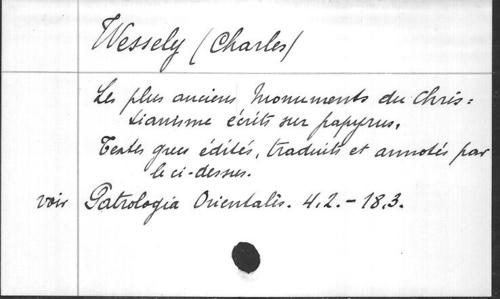 Wessely (Charles)
Les plus anciens Monuments du Chris=
tianisme écrits sur papyrus.
Textes grecs édités, traduits et annotés par
le ci-dessus.
voir Patrologia Orientalis. 4.2. – 18.3.